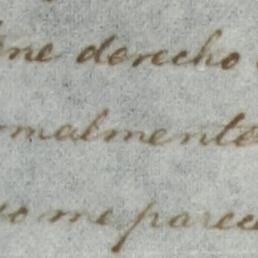 ene derecho
malmente
so me parece